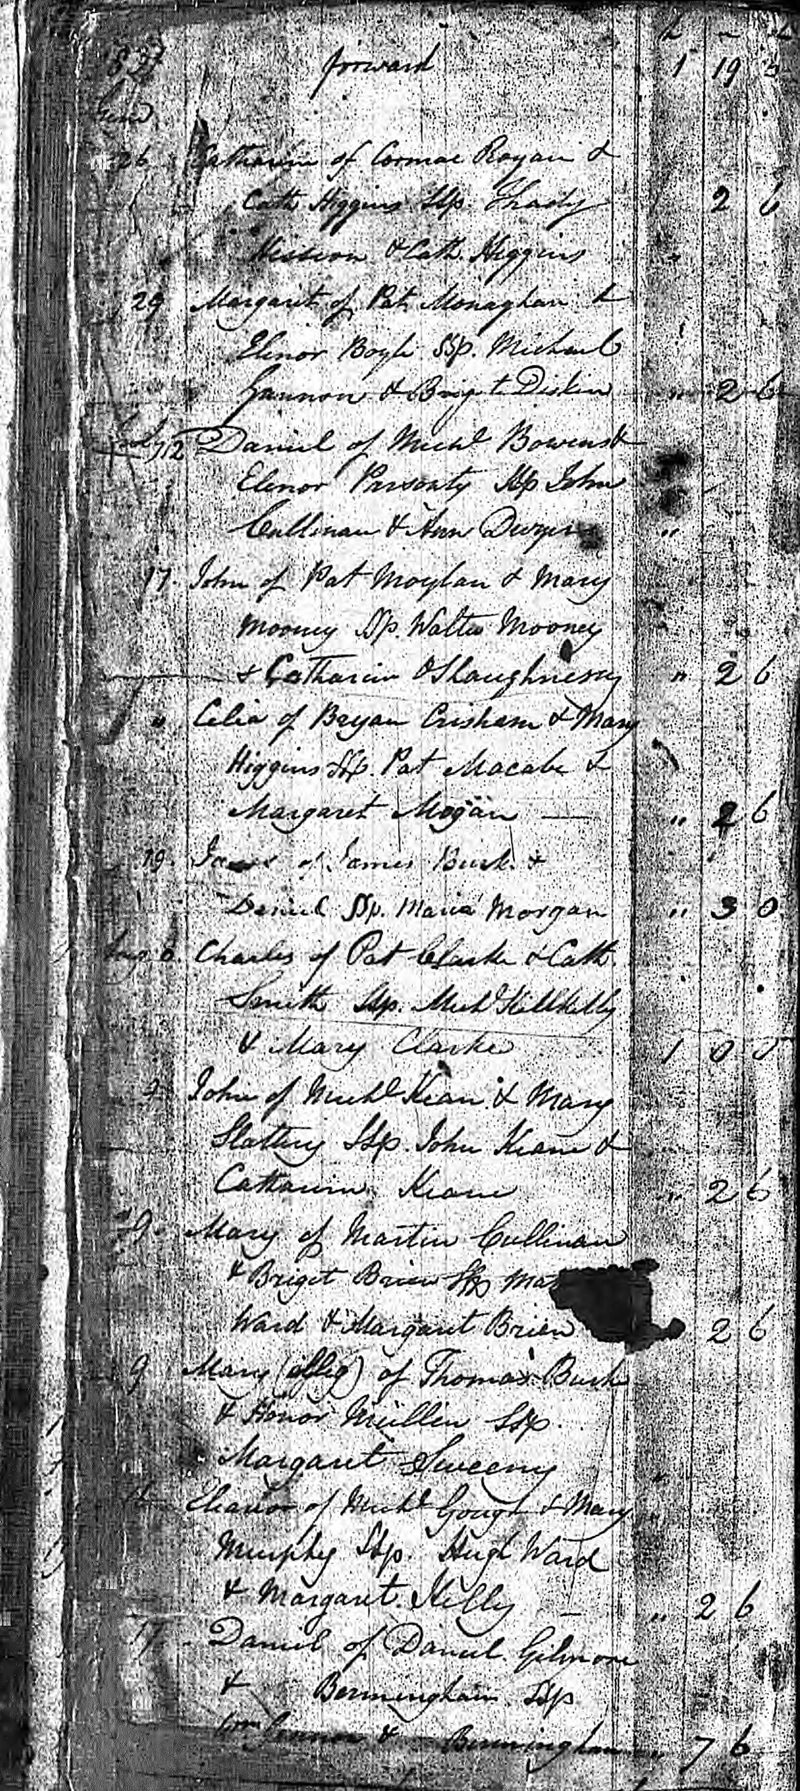 1837 forward 1 19
June
26 Catharine of Cormac Rogan &
Cath Higgins Ssp. Thady 2 6
& Cath Higgins
29 Margaret of Pat Monaghan &
Elenor Boyle Ssp. Michael
Gannon & Briget Diskin " 2 6
July 12 Daniel of Michl Bowens &
Elenor Ssp John
Cullinan & Ann Dwyer "
17. John of Pat Moylan & Mary
Mooney Ssp. Walter Mooney
& Catharine OShaughnessy " 2 6
" Celia of Bryan Crisham & Mary
Higgins Ssp. Pat Macabe &
Margaret Mogan — " 2 6
19. of James Burk &
Ssp. Maria Morgan " 3 0
Aug 6 Charles of Pat Clarke & Cath.
Smith Ssp. Michl Killkelly
& Mary Clarke 1 0 0
John of Michl Kean & Mary
Slattery Ssp. John Keane &
Catharine Keane " 2 6
9. Mary of Martin Cullinan
& Briget Brien Ssp
Ward & Margaret Brien 2 6
9 Mary (illeg) of Thomas Burke
& Honor Mullin Ssp.
Margaret Sweeny "
Eleanor of Michl Gough & Mary
Murphy Ssp. Hugh Ward
& Margaret Kelly — " 2 6
17. Daniel of Daniel Gilmore
& Bermingham Ssp
& Bermingham " 7 6